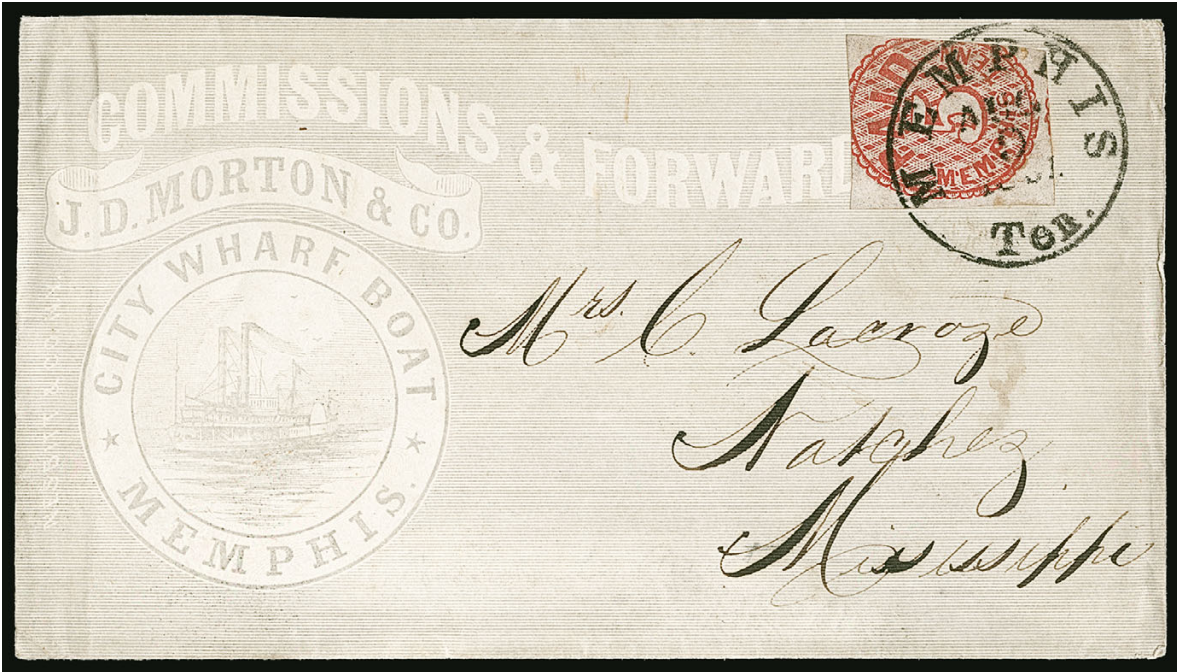 COMMISSIONS & FORWARD
J. D. MORTON & CO.
CITY WHARF BOAT
MEMPHIS.
PAID
5
MEMPHIS
MEMPHIS
Ten.
Mrs. C. Lacroze
Natchez
Mississippi